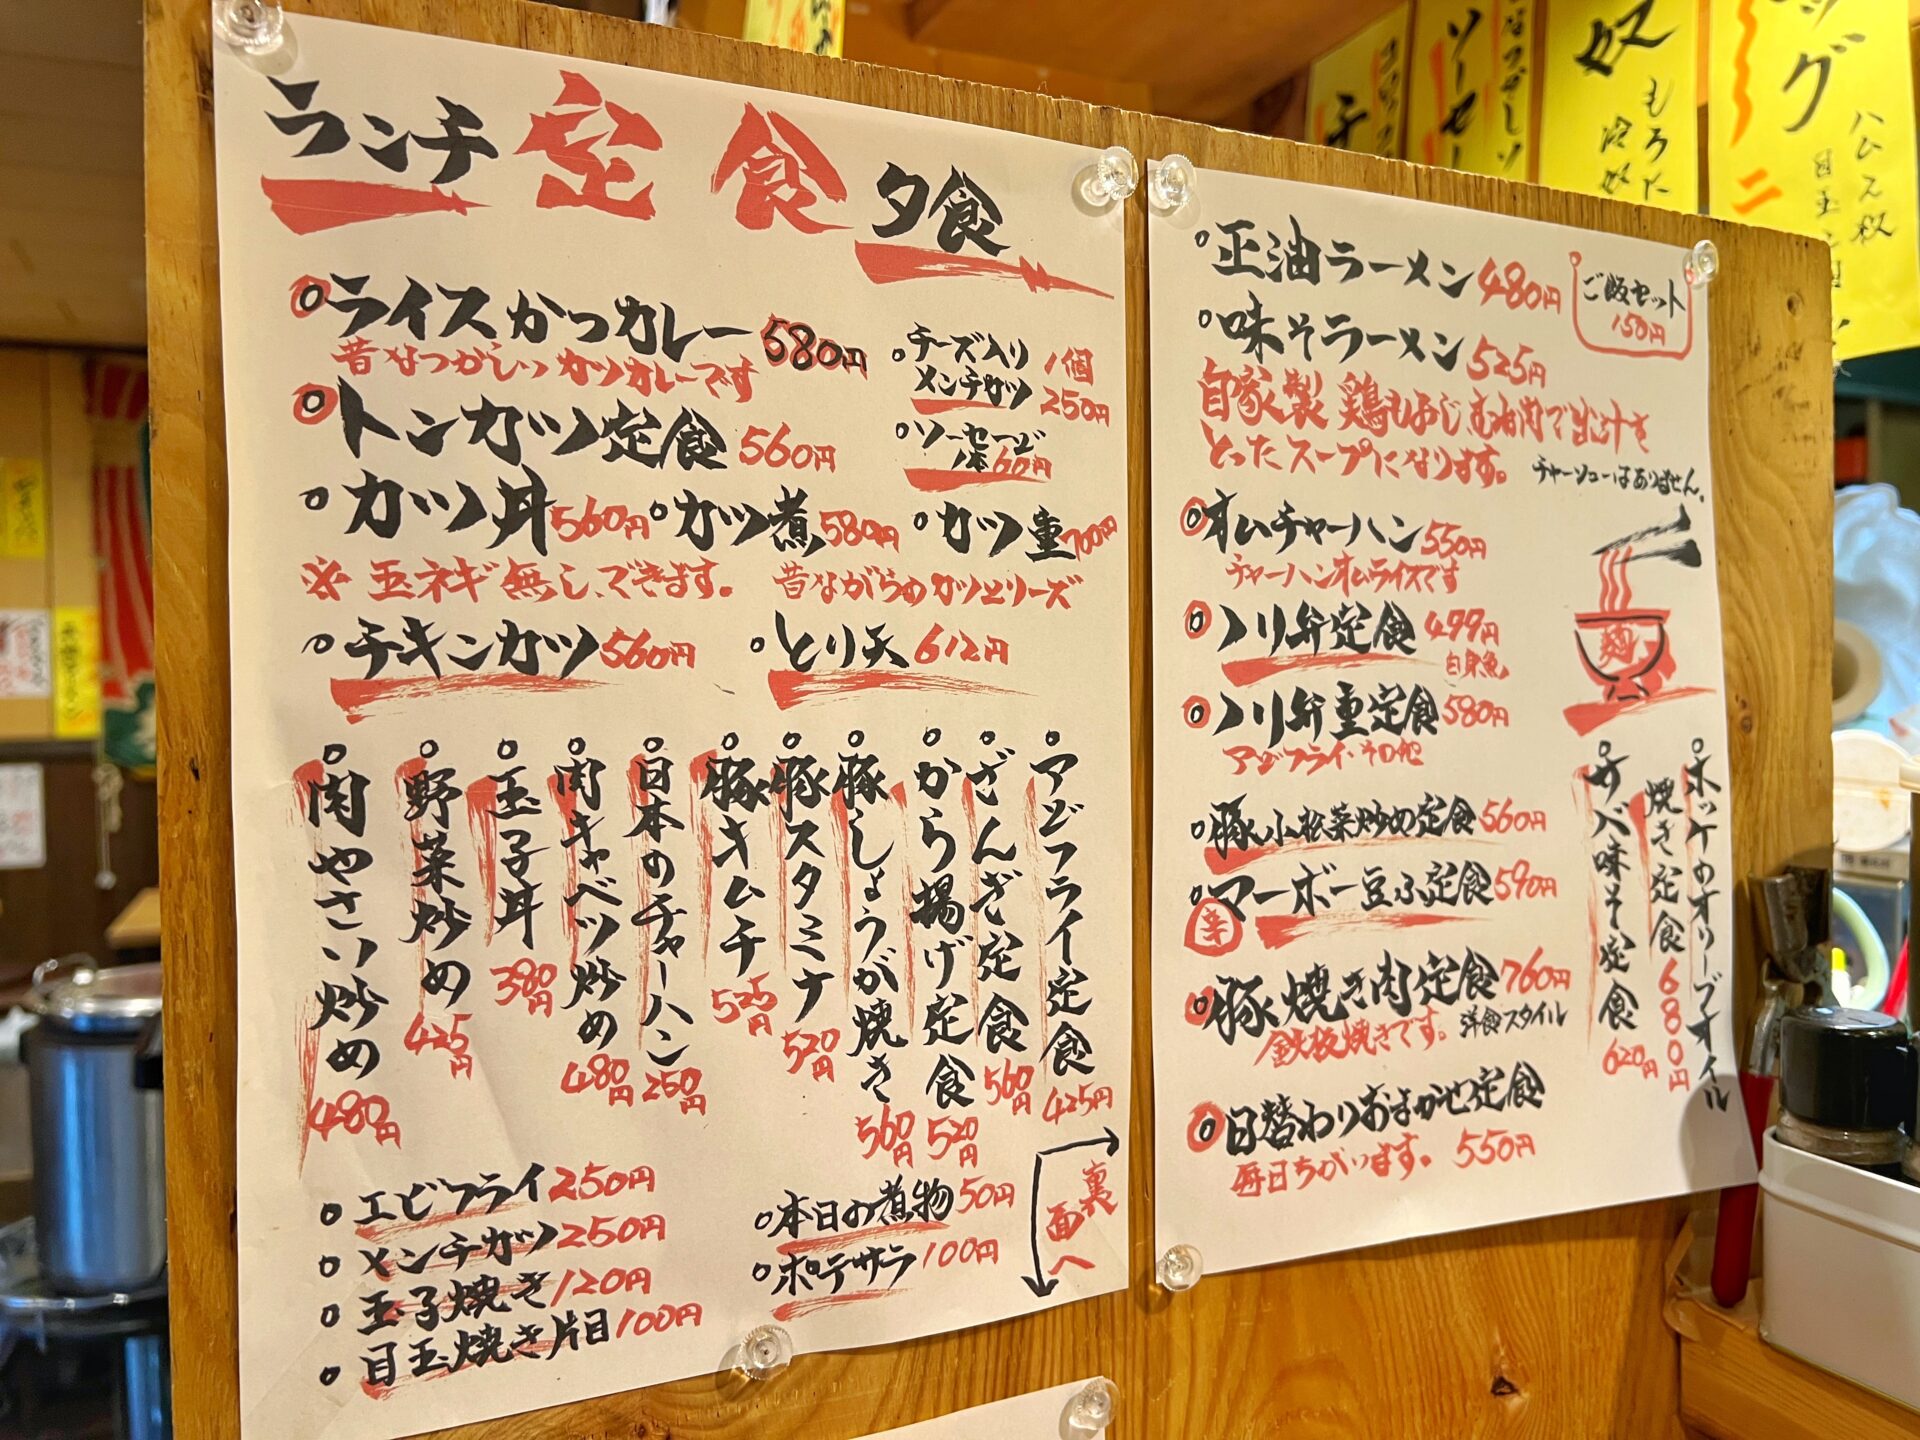 ランチ 定食 夕食
ライスかつカレー 580円
昔なつかしいカツカレーです
チーズ入り
メンチカツ
1個
250円
トンカツ定食 560円
ソーセージ
1本60円
カツ丼 560円
カツ煮 580円
カツ重 700円
※玉ネギ無し、できます。
昔ながらのカツシリーズ
チキンカツ 560円
とり天 612円
アジフライ定食 425円
ざんぎ定食 560円
から揚げ定食 520円
豚しょうが焼き 560円
豚スタミナ 520円
豚キムチ 525円
日本のチャーハン 250円
肉キャベツ炒め 480円
玉子丼 380円
野菜炒め 425円
肉やさい炒め 480円
エビフライ 250円
メンチカツ 250円
玉子焼き 120円
目玉焼き片目 100円
本日お煮物 50円
ポテサラ 100円
裏面へ
正油ラーメン 480円
ご飯セット
150円
味そラーメン 525円
自家製 鶏もも むね肉で出汁を
とったスープになります。
チャーシューはありません。
オムチャーハン 550円
チャーハンオムライスです
ノリ弁定食 499円
白身魚
ノリ弁重定食 580円
アジフライ・その他
麺
豚小松菜炒め定食 560円
マーボー豆ふ定食 590円
辛
豚焼き肉定食 760円
鉄板焼きです。
洋食スタイル
日替わりおまかせ定食
毎日ちがいます。 550円
ホッケのオリーブオイル
焼き定食 680円
サバ味そ定食 620円
奴
もろた
冷奴
グ
ハム2枚